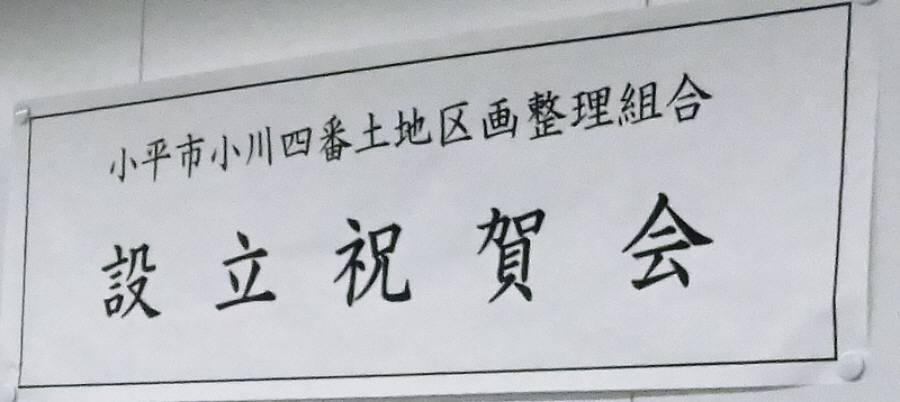 小平市小川四番土地区画整理組合
設立祝賀会